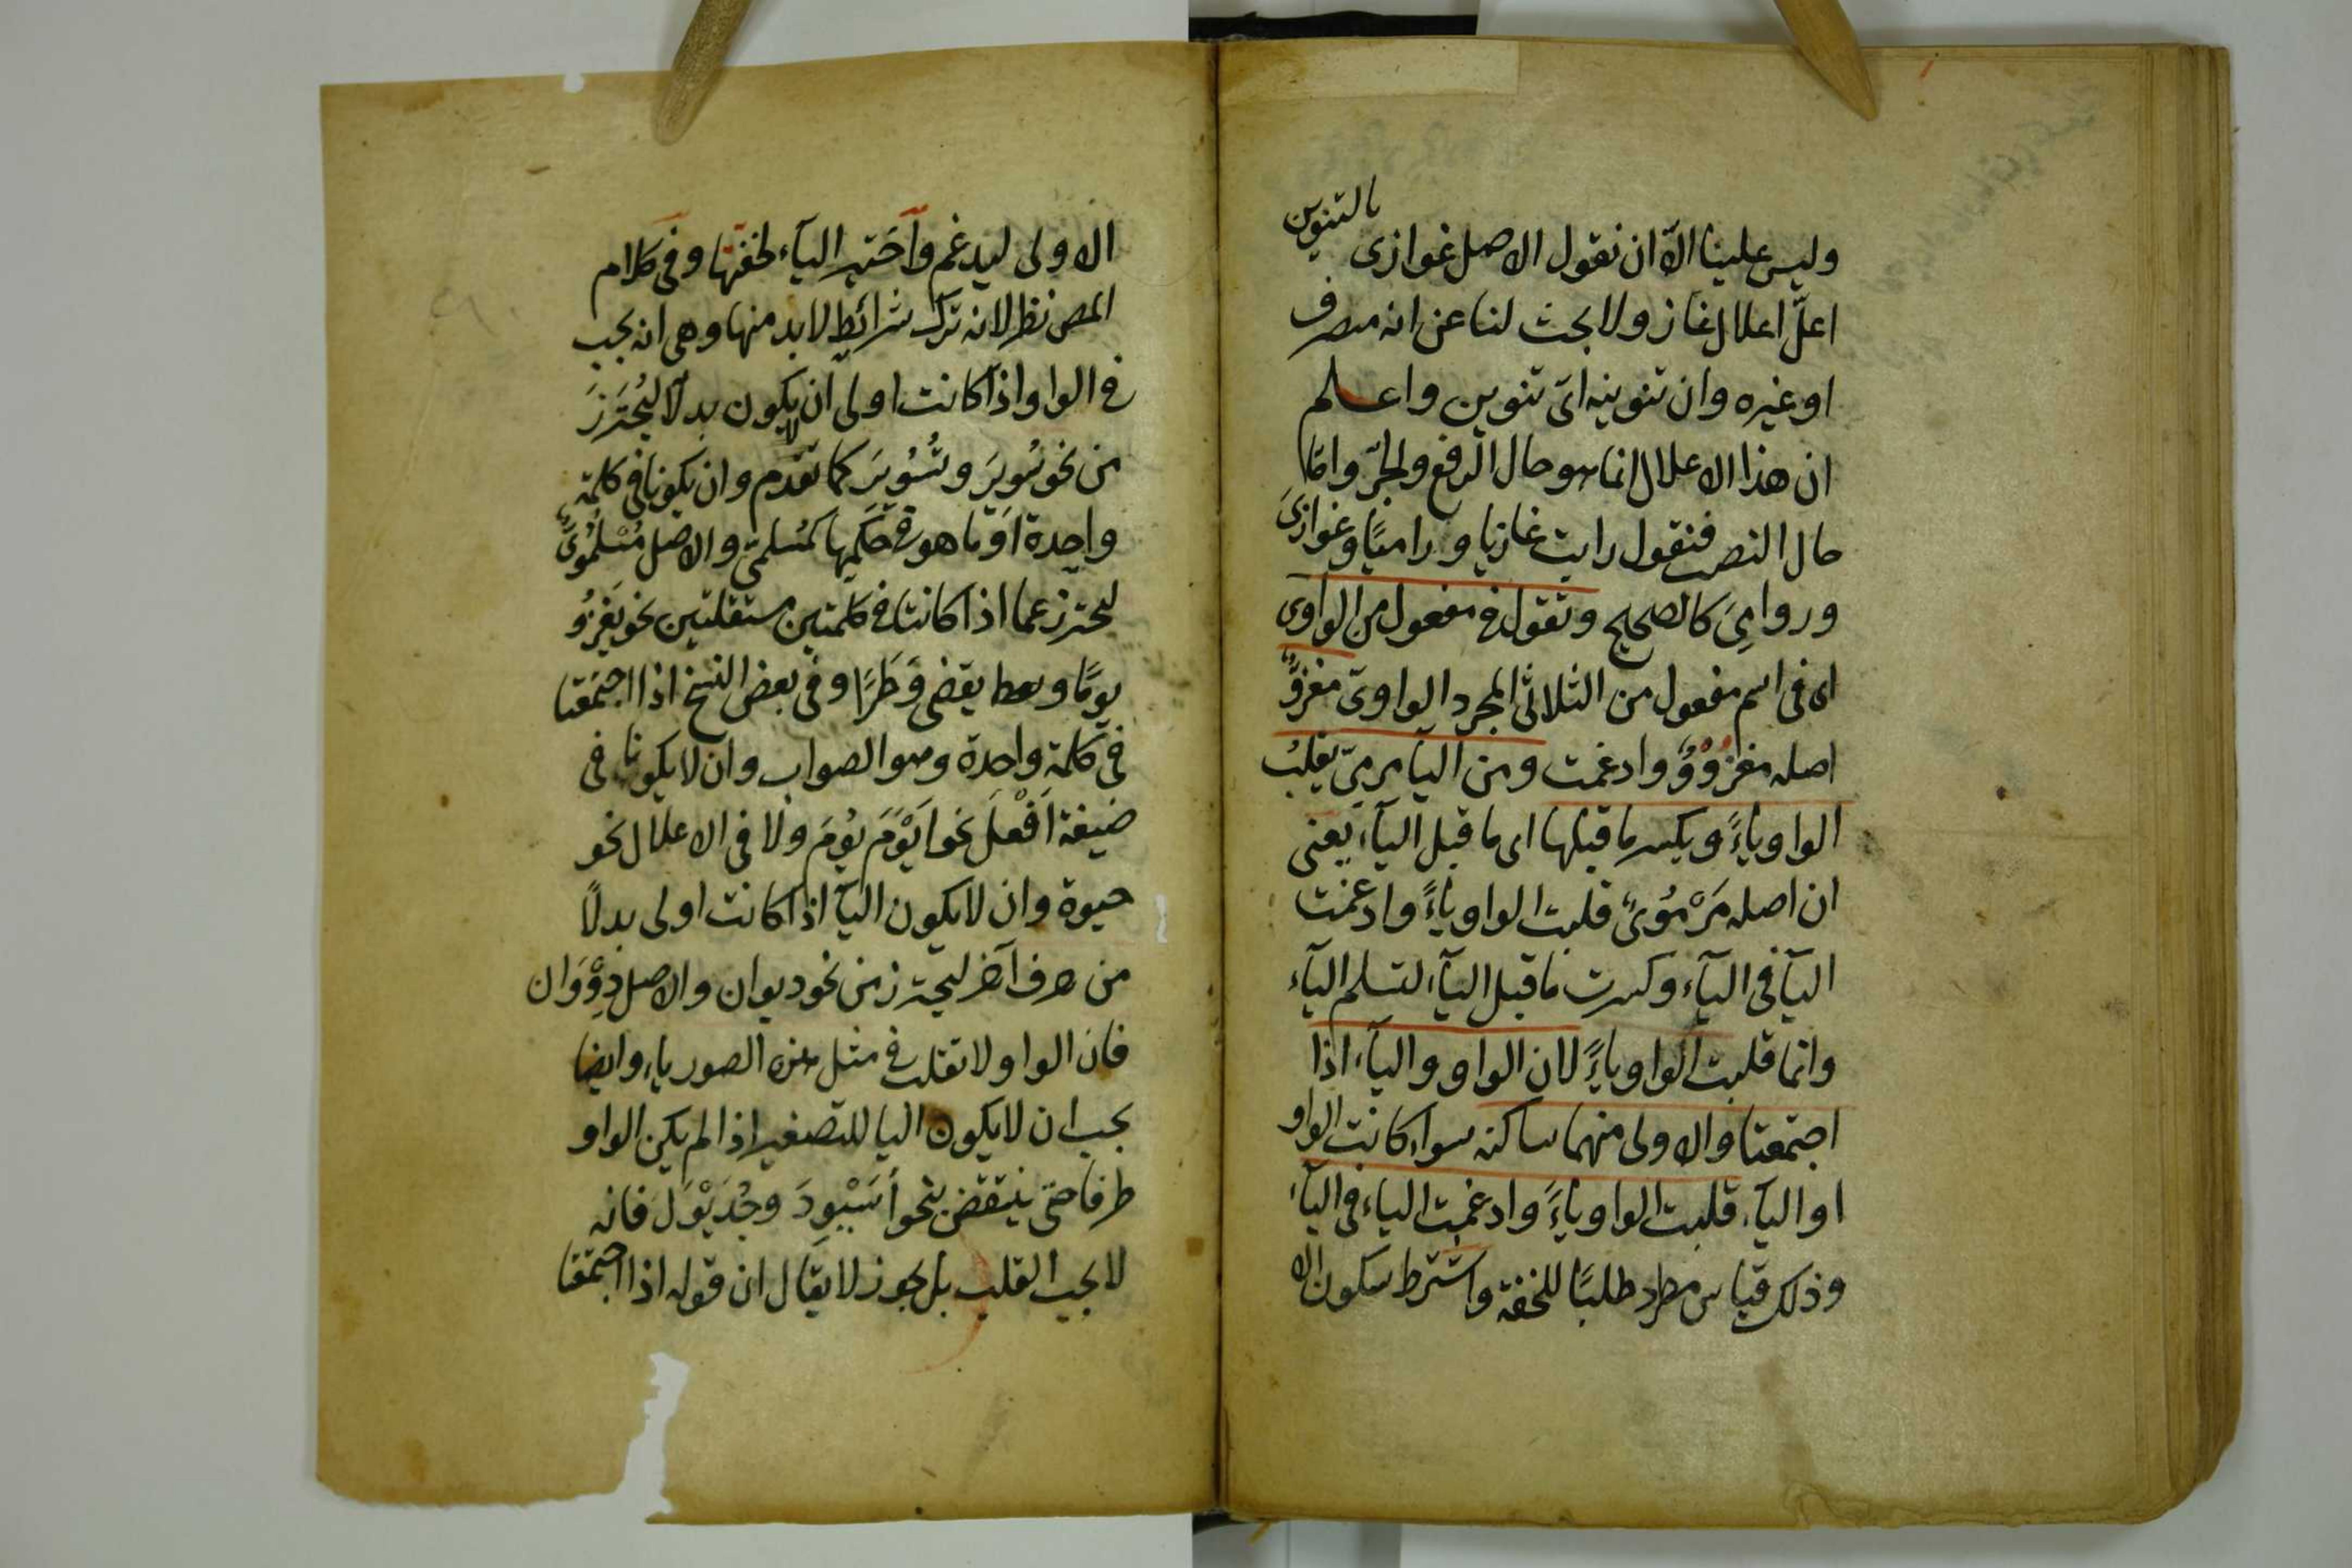 وليس علينا الّا ان نقول الاصل غوازى بالتنوين
اعلّ اعلال غاز ولا بحث لنا عن انه منصرف
او غيره وان تنوينه اىّ تنوين واعلم
ان هذا الاعلال انما هو حال الرفع والجرّ وامّا
حال النصب فنقول رايت غازيا وراميًا وغوازىَ
وروامىَ كالصحيح وتقول فى مفعول من الواوى
اى فى اسم مفعول من الثلاثى المجرد الواوىّ مغزوٌّ
اصله مغزُوْوٌ وادغمت ومن اليا مرمىّ يقلبُ
الواو ياءً ويكسر ما قبلها اى ما قبل اليآء يعنى
ان اصله مَرْمُوىٌ قلبت الواو ياءً وادغمت
اليآ فى اليآء وكسرت ما قبل اليآء لتسلم اليآء
وانما قلبت الواو ياءً لان الواو واليآء اذا
اجتمعتا والاولى منهما ساكنه سواء كانت الواو
او اليآء قلبت الواو ياءً وادغمت الياء فى اليآء
وذلك قياس مطرد طلبًا للخفة واشترط سكون الا
الاولى ليدغم واختير اليآء لخفتها وفى كلام
المص نظر لانه ترك شرائط لابد منها وهى انه يجب
فى الواو اذا كانت اولى ان لا يكون بدلًا ليُحتَرَزَ
من نحو سُويِرَ وتُسُويِرَ كما تقدم وان تكونا فى كلمة
واحدة او ما هو فى حكمها كمُسلمىّ والاصل مُسْلِمُوىَ
ليحترز عما اذا كانتا فى كلمتين مستقلتين نحو يغزُو
يومًا ويعطا يقضى وَطَرًا وفى بعض النسخ اذا اجتمعتا
فى كلمة واحدة وهو الصواب وان لا يكونا فى
صيغة اَفْعَلَ نحو اَيْوَمَ يوم ولا فى الاعلال نحو
حيوة وان لا يكون اليآ اذا كانت اولى بدلًا
من حرف آخر ليحترز من نحو ديوان والاصل دِوْوَان
فان الواو لا تقلب فى مثل هذه الصور ياء وايضا
يجب ان لا يكون اليا للتصغير اذا لم يكن الواو
طرفا حتى ينتقض بنحو أسَيْوِدَ وجُدَيْوَلَ فانه
لا يجب القلب بل يجوز لا يقال ان قوله اذا اجتمعتا